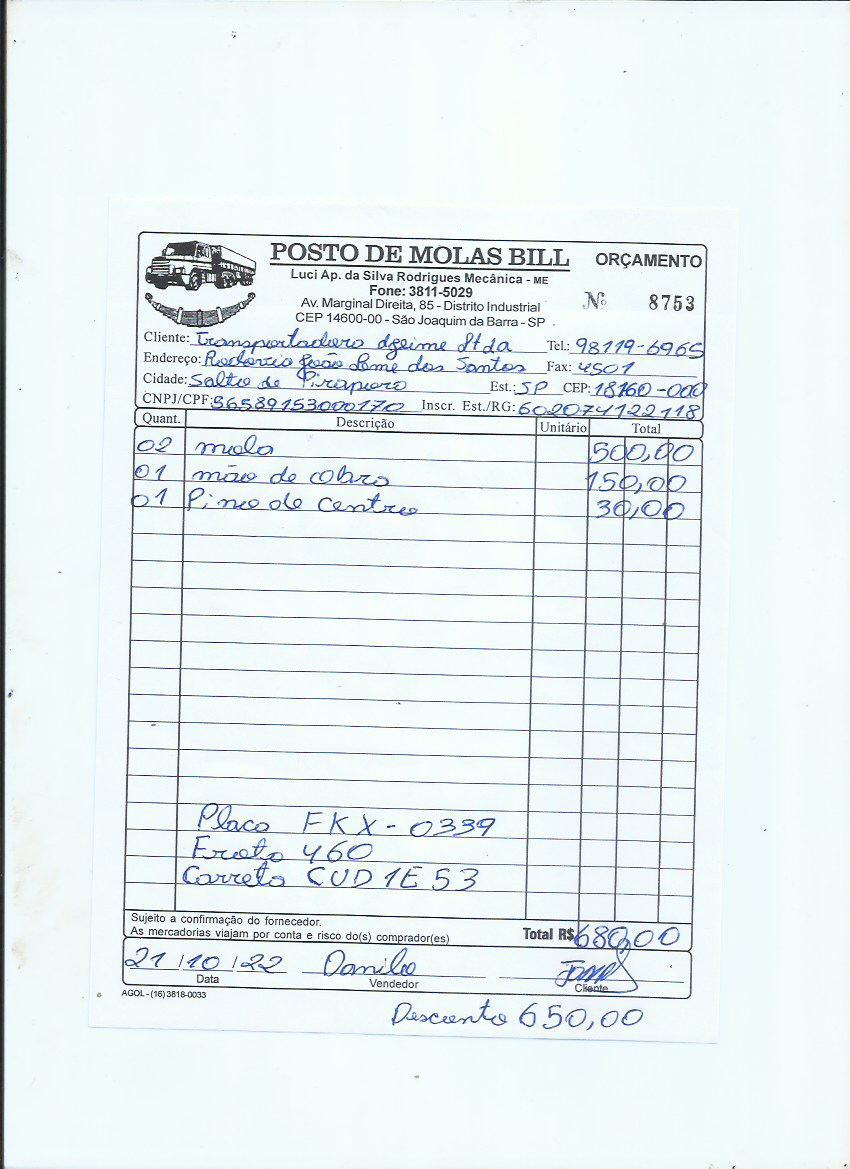 POSTO DE MOLAS BILL
ORÇAMENTO
Luci Ap. da Silva Rodrigues Mecânica - ME
Fone: 3811-5029
Av. Marginal Direita, 85 - Distrito Industrial
CEP 14600-00 - São Joaquim da Barra - SP
Nº 8753
Cliente: Transportadora Ltda Tel.: 98119-6965
Endereço: Rodovia João Leme dos Santos Fax: 4501
Cidade: Salto de Pirapora Est.: SP CEP: 18160-000
CNPJ/CPF: 56589153000170 Inscr. Est./RG: 602074122118
Quant. Descrição Unitário Total
02 mola 500,00
01 mão de obra 150,00
01 Pino de centro 30,00
Placa FKX-0339
Frota 460
Carreta CUD1E53
Sujeito a confirmação do fornecedor.
As mercadorias viajam por conta e risco do(s) comprador(es)
Total R$ 680,00
21/10/22 Danilo
Data Vendedor Cliente
AGOL - (16) 3818-0033
Desconto 650,00